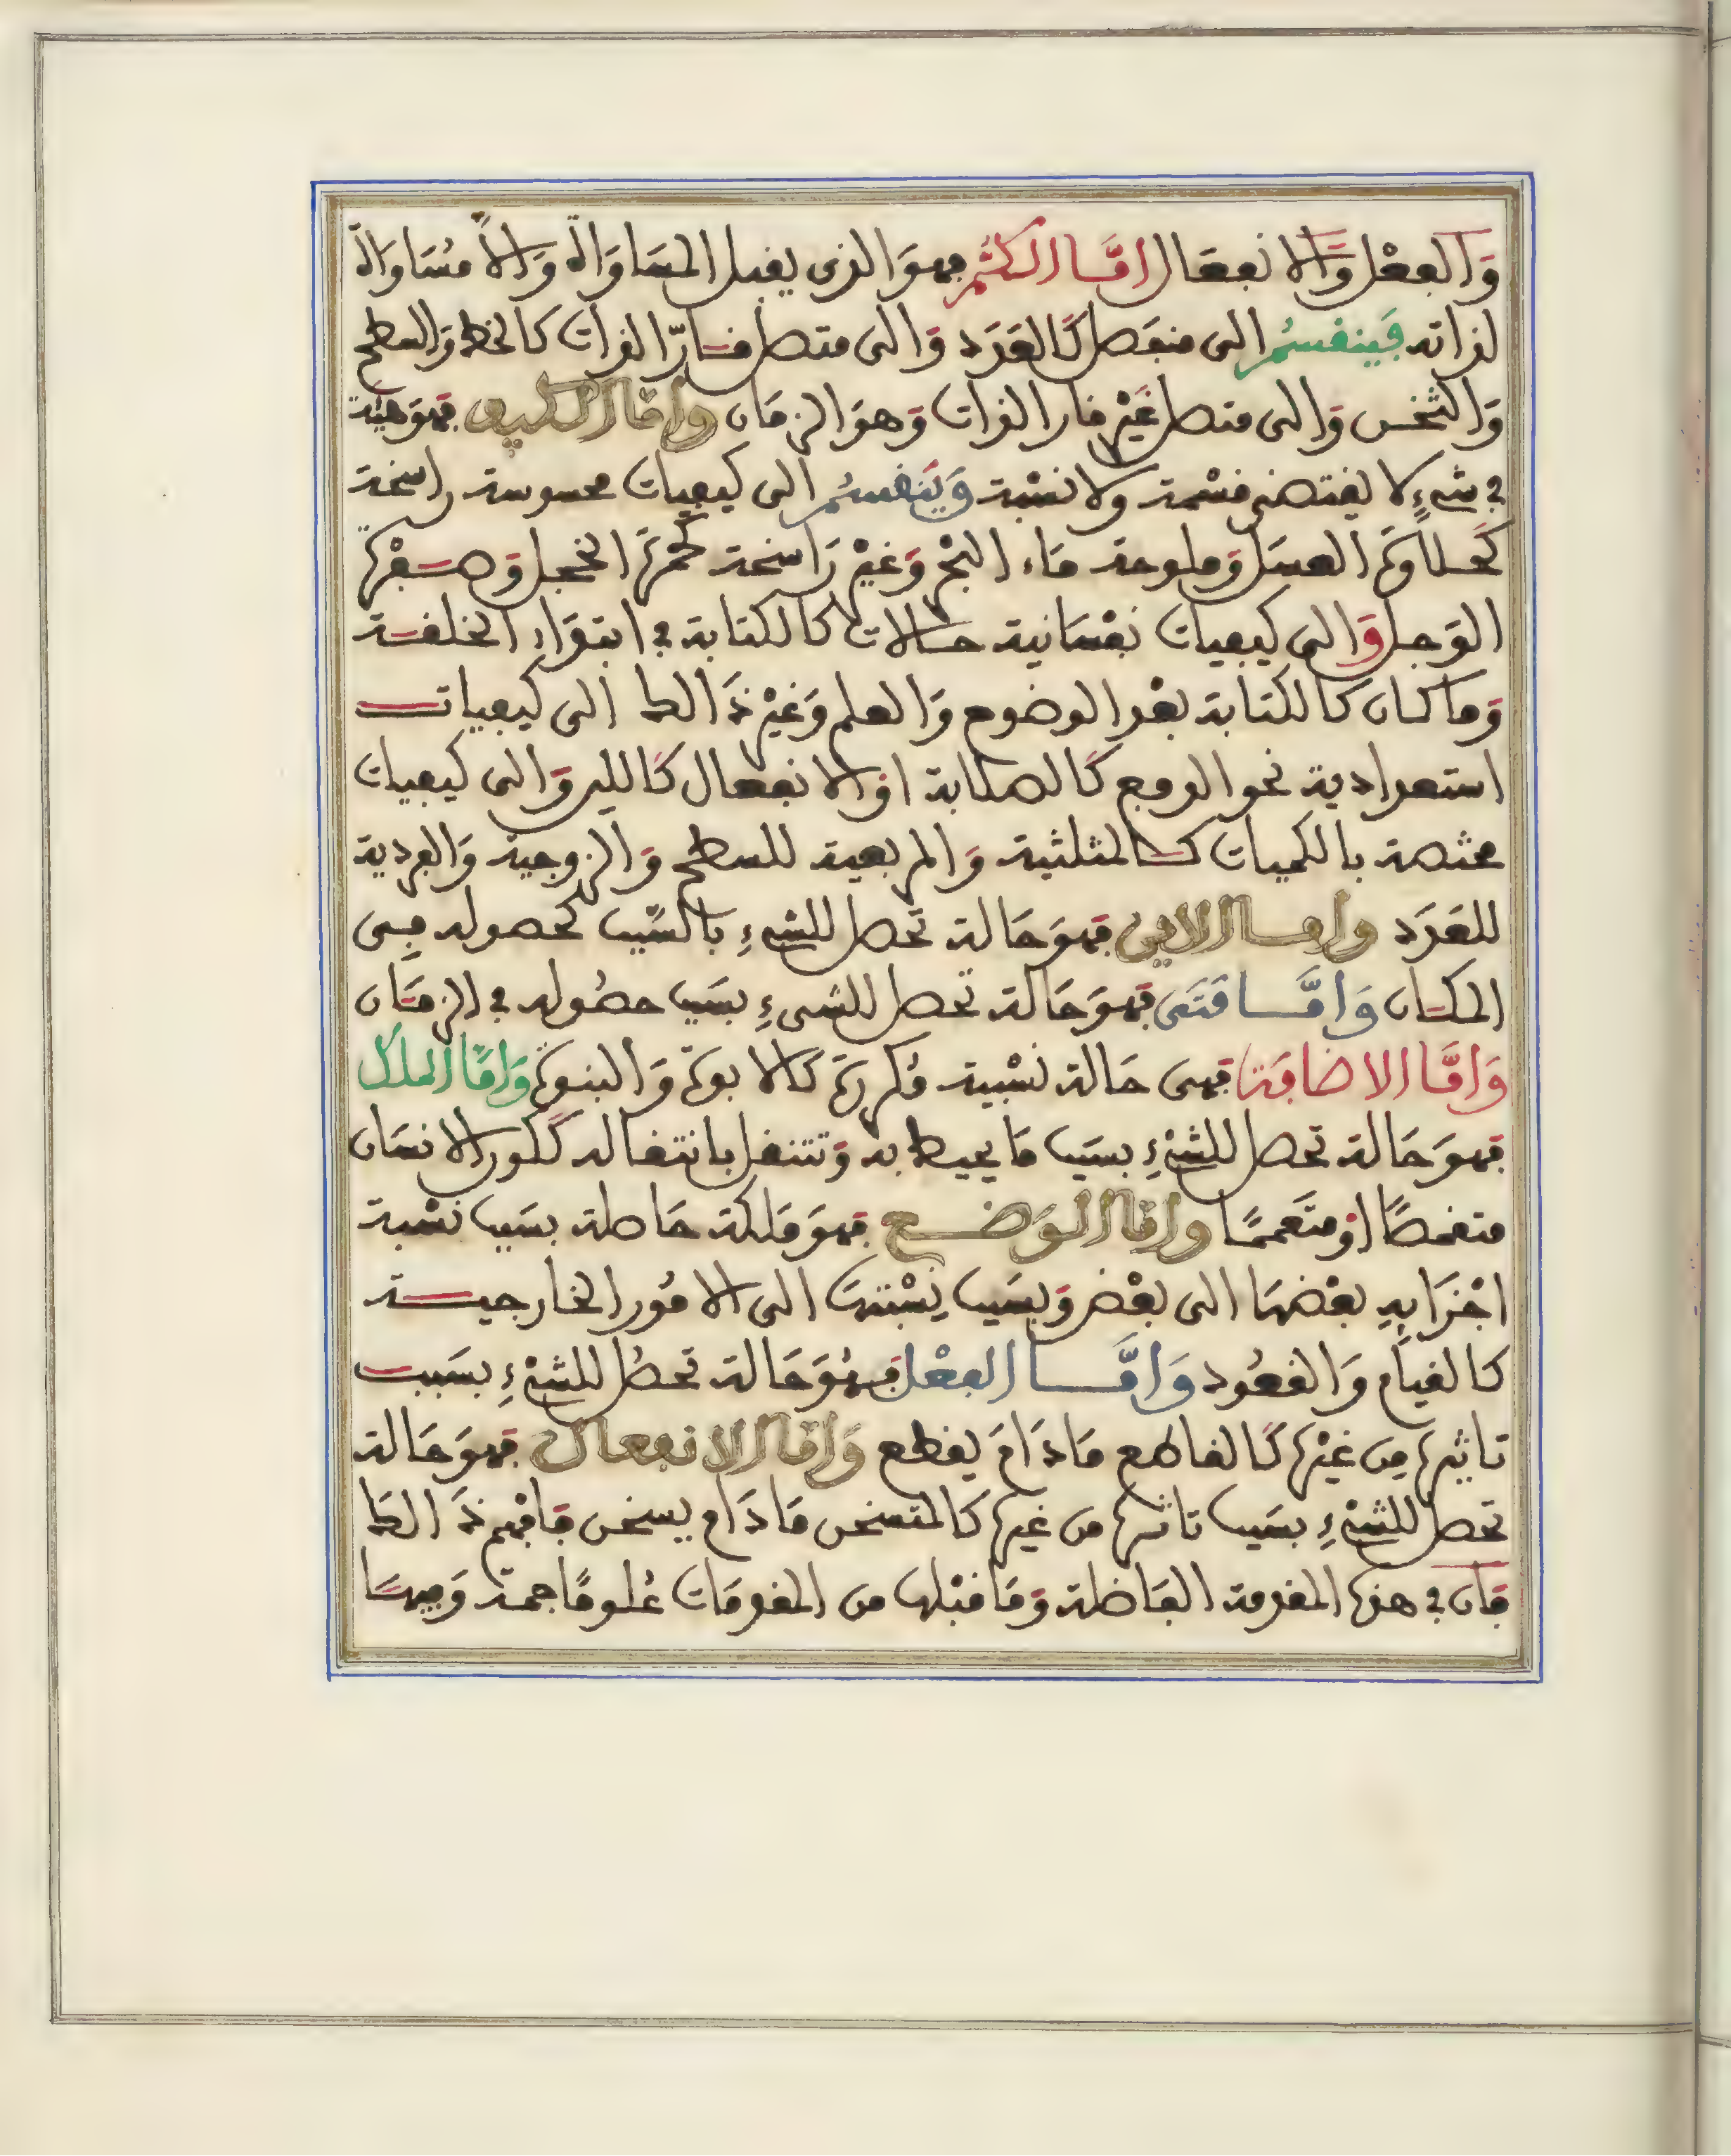 وَالفعْل وَّالانفعَال امَّا الكَمُّ فهوَ الذى يقبل المسَاوَاة وَالاَّ مُسَاوَاة
لذاته فَينقسمُ الى منفَصل كَالعَدَد وَالى متصل قارّ الذات كالخط وَالسطح
وَالثخن وَالى متصل غَيْر قار الذات وَهوَ الزمَان وامَّا الكيف فهوَ هيئة
في شيءٍ لا يقتضي قسْمة ولا نسْبة وَيَنقسمُ الى كيفيات محسوسة راسخة
كَحلاوَة العسَل وَملوحة مَاء البحْر وَغيْر رَاسخة كحُمْرَة الخجل وَصفْرة
الوَجل وَالى كيفيات نفْسَانية حالات كالكتابة في ابتدَاءِ الخلقة
وَما كان كالكتابة بعْد الوضوح وَالعلم وَغيْر ذَالك الى كيفيات
استعدادية نحو الدفع كَالصلابة اوْ الانفعال كَاللين وَالى كيفيات
مختصة بالكميات كالمثلثية وَالمربعية للسطح وَالزوجية وَالفردية
للعَدَد وامَّا الاين فهوَ حَالة تحْصل للشيءِ بالسَّبب كحصوله فِى
المكان وَامَّا مَتَى فهوَ حَالَة تحصل للشىءِ بسَبب حصُوله في الزمَان
وَامَّا الاضافَة فهى حَالة نسْبية مُكررَة كالابوة وَالبنوة وَامَّا الملك
فهوَ حَالة تحصل للشيْءِ بسَبب مَا يحيط به وَتنتقل بانتقاله ككون الانسَان
متقمصًا اوْ متَعممًا وامَّا الوَضع فهوَ مَلكة حَاصلة بسَبب نسْبة
اجْزَايهِ بعْضهَا الى بعْض وَبسَبب نِسْبتهَا الى الامُور الخارجية
كالقيام وَالقعُود وَامَّا الفعْل فَهُوَ حَالة تحصُل للشيْءِ بسَبب
تاثيرهِ من غيْرهِ كَالقاطع مَادَامَ يقطع وَامَّا الانفعال فهوَ حَالة
تحصل للشيْءِ بسَبب تاثره من غيره كالمتسخن مَادَام يسخن فافْهم ذَالك
فان في هذه المقدمة الفَاضلة وَمَا قبْلها من المقدمَات عُلومًا جمة وَفيهَا